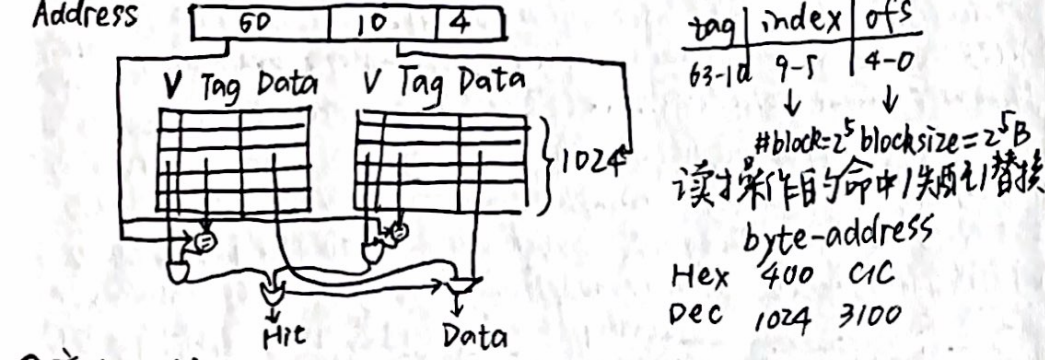 Address 60 10 4
V Tag Data V Tag Data
1024
= =
Hit Data
tag index ofs
63-10 9-5 4-0
#block=2^5 blocksize=2^5B
读操作的命中/失配/替换
byte-address
Hex 400 C1C
Dec 1024 3100